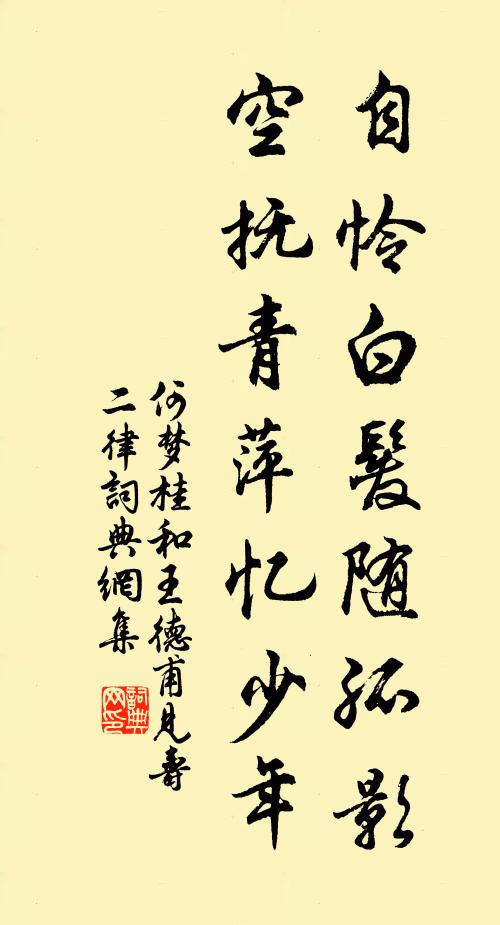 自怜白髮随孤影
空抚青萍忆少年
何梦桂和王德甫见壽
二律词典網集
詞典网印